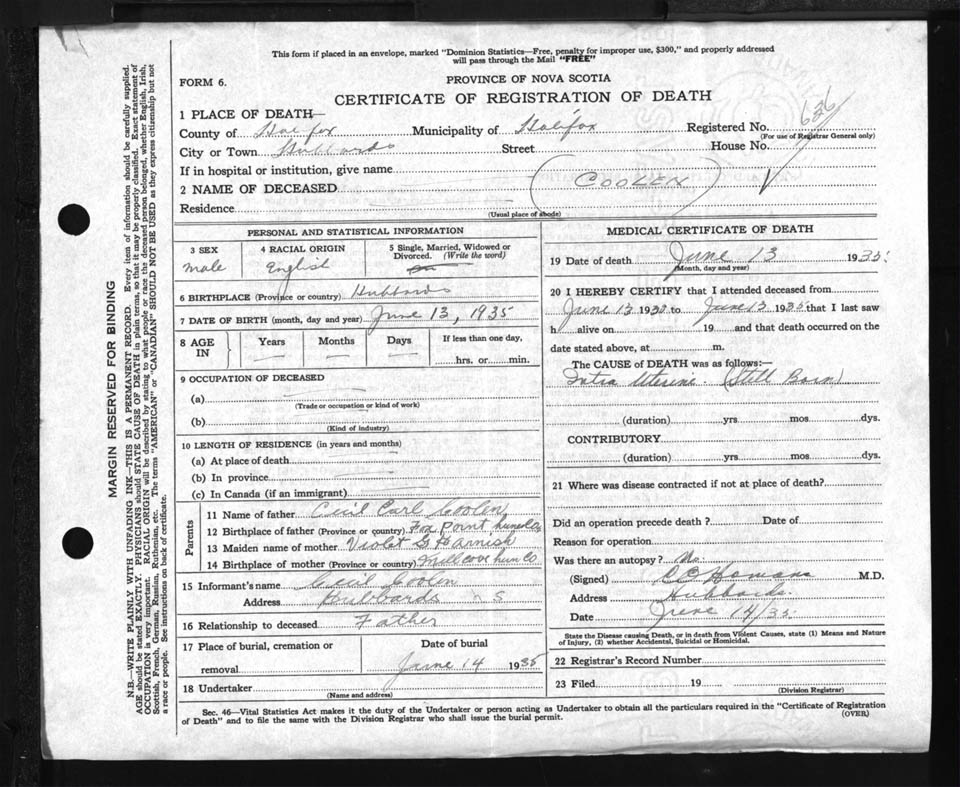 This form if placed in an envelope, marked "Dominion Statistics—Free, penalty for improper use, $300," and properly addressed
will pass through the Mail "FREE"
FORM 6.
PROVINCE OF NOVA SCOTIA
CERTIFICATE OF REGISTRATION OF DEATH
1 PLACE OF DEATH—
County of Halifax Municipality of Halifax Registered No. 626
(For use of Registrar General only)
City or Town Hubbards Street House No.
If in hospital or institution, give name
2 NAME OF DECEASED (COOLEN)
Residence
(Usual place of abode)
PERSONAL AND STATISTICAL INFORMATION
3 SEX
Male
4 RACIAL ORIGIN
English
5 Single, Married, Widowed or
Divorced. (Write the word)
6 BIRTHPLACE (Province or country) Hubbards
7 DATE OF BIRTH (month, day and year) June 13, 1935
8 AGE
IN
Years
Months
Days
If less than one day,
hrs. or min.
9 OCCUPATION OF DECEASED
(a)
(Trade or occupation or kind of work)
(b)
(Kind of industry)
10 LENGTH OF RESIDENCE (in years and months)
(a) At place of death
(b) In province
(c) In Canada (if an immigrant)
Parents
11 Name of father Cecil Carl Coolen
12 Birthplace of father (Province or country) Fox Point Lunen Co
13 Maiden name of mother Violet G Harnish
14 Birthplace of mother (Province or country) Mill cove Lun Co
15 Informant's name Cecil Coolen
Address Hubbards N S
16 Relationship to deceased Father
17 Place of burial, cremation or
removal
Date of burial
June 14 1935
18 Undertaker
(Name and address)
MEDICAL CERTIFICATE OF DEATH
19 Date of death June 13 1935
(Month, day and year)
20 I HEREBY CERTIFY that I attended deceased from
June 13 1935 to June 13 1935 that I last saw
h alive on 19 and that death occurred on the
date stated above, at m.
The CAUSE OF DEATH was as follows:—
Intra Uterine. (Still Born)
(duration) yrs mos dys.
CONTRIBUTORY
(duration) yrs mos dys.
21 Where was disease contracted if not at place of death?
Did an operation precede death? Date of
Reason for operation
Was there an autopsy? No.
(Signed) M.D.
Address Hubbards.
Date June 14/35.
State the Disease causing Death, or in death from Violent Causes, state (1) Means and Nature
of Injury, (2) whether Accidental, Suicidal or Homicidal.
22 Registrar's Record Number
23 Filed 19
(Division Registrar)
Sec. 46—Vital Statistics Act makes it the duty of the Undertaker or person acting as Undertaker to obtain all the particulars required in the "Certificate of Registration
of Death" and to file the same with the Division Registrar who shall issue the burial permit.
(OVER)
MARGIN RESERVED FOR BINDING
N.B.—WRITE PLAINLY WITH UNFADING INK—THIS IS A PERMANENT RECORD. Every item of information should be carefully supplied.
AGE should be stated EXACTLY. PHYSICIANS should STATE CAUSE OF DEATH in plain terms, so that it may be properly classified. Exact statement of
OCCUPATION is very important. RACIAL ORIGIN will be described by stating to what people or race the deceased person belonged, whether English, Irish,
Scottish, French, German, Russian, Ruthenian, etc. The terms "AMERICAN" or "CANADIAN" SHOULD NOT BE USED as they express citizenship but not
a race or people. See instructions on back of certificate.